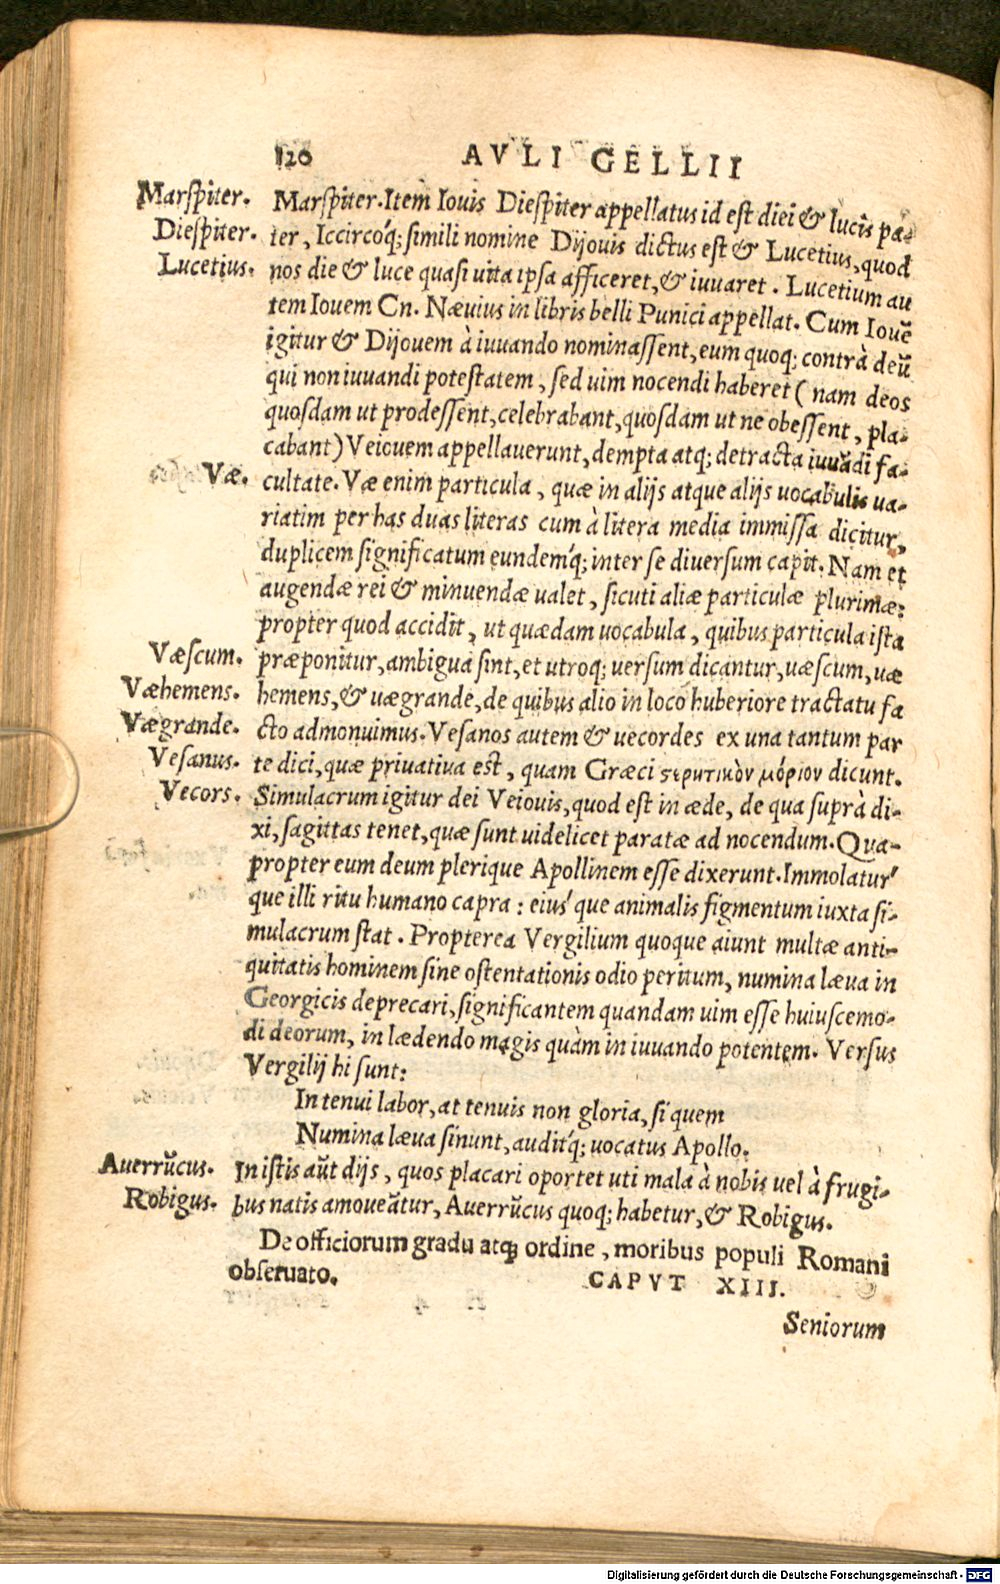 120 AVLI GELLII
Marspiter. Marspiter. Item Iouis Diespiter appellatus id est diei & lucis pa-
Diespiter. ter, Iccircoq́; simili nomine Dijouis dictus est & Lucetius, quod
Lucetius. nos die & luce quasi uita ipsa afficeret, & iuuaret. Lucetium au
tem Iouem Cn. Næuius in libris belli Punici appellat. Cum Iouẽ
igitur & Dijouem à iuuando nominassent, eum quoq; contrà deũ
qui non iuuandi potestatem, sed uim nocendi haberet ( nam deos
quosdam ut prodessent, celebrabant, quosdam ut ne obessent, pla-
cabant) Veiouem appellauerunt, dempta atq; detracta iuuãdi fa-
Væ. cultate. Væ enim particula, quæ in alijs atque alijs uocabulis ua-
riatim per has duas literas cum à litera media immissa dicitur,
duplicem significatum eundemq́; inter se diuersum capit. Nam et
augendæ rei & minuendæ ualet, sicuti aliæ particulæ plurimæ:
propter quod accidit, ut quædam uocabula, quibus particula ista
Væscum. præponitur, ambigua sint, et utroq; uersum dicantur, uæscum, uæ
Væhemens. hemens, & uægrande, de quibus alio in loco huberiore tractatu fa
Vægrande. cto admonuimus. Vesanos autem & uecordes ex una tantum par
Vesanus. te dici, quæ priuatiua est, quam Græci ϛερητικὸν μόριον dicunt.
Vecors. Simulacrum igitur dei Veiouis, quod est in æde, de qua suprà di-
xi, sagittas tenet, quæ sunt uidelicet paratæ ad nocendum. Qua-
propter eum deum plerique Apollinem esse dixerunt. Immolatur
que illi ritu humano capra: eius que animalis figmentum iuxta si-
mulacrum stat. Propterea Vergilium quoque aiunt multæ anti-
quitatis hominem sine ostentationis odio peritum, numina læua in
Georgicis deprecari, significantem quandam uim esse huiuscemo-
di deorum, in lædendo magis quàm in iuuando potentem. Versus
Vergilij hi sunt:
In tenui labor, at tenuis non gloria, si quem
Numina læua sinunt, auditq́; uocatus Apollo.
Auerrũcus. In istis aũt dijs, quos placari oportet uti mala à nobis uel à frugi-
Robigus. bus natis amoueãtur, Auerrũcus quoq; habetur, & Robigus.
De officiorum gradu atq; ordine, moribus populi Romani
obseruato. CAPVT XIII.
Seniorum
Digitalisierung gefördert durch die Deutsche Forschungsgemeinschaft - DFG